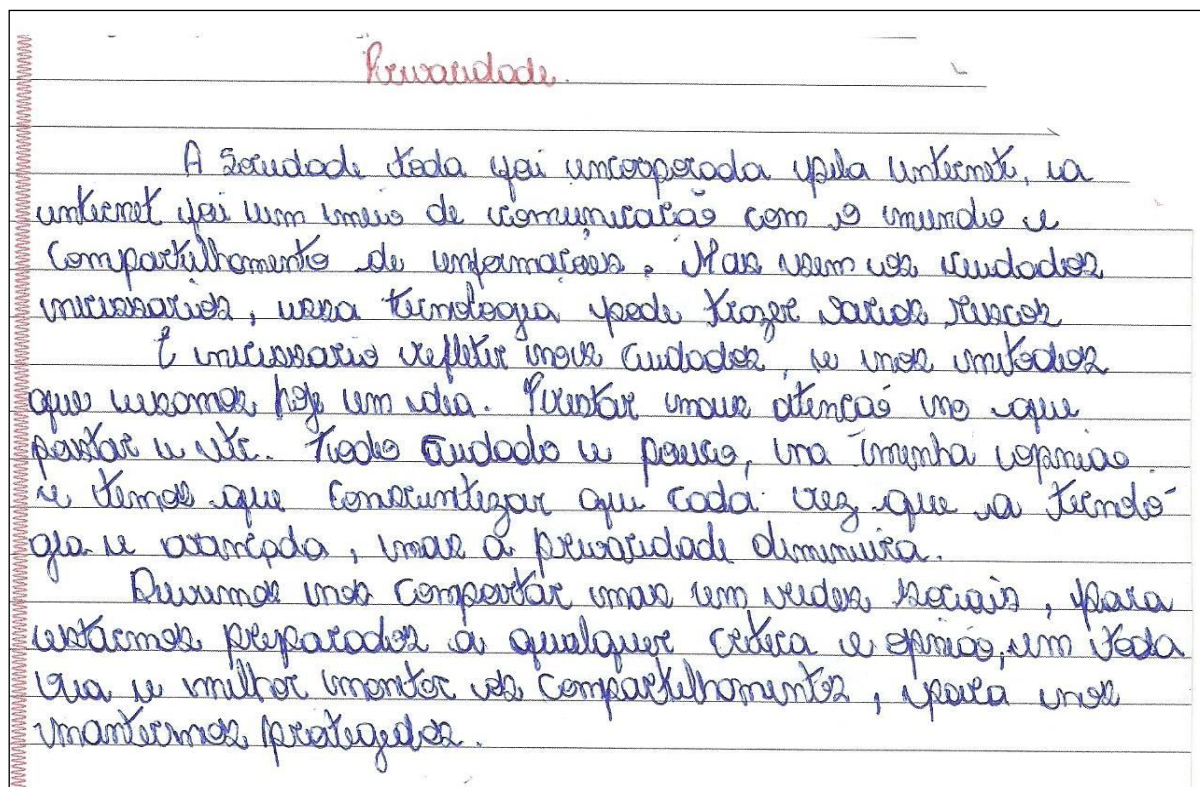 Privacidade.
A Sociedade toda foi incorporada pela internet, a
internet foi um meio de comunicação com o mundo e
Compartilhamento de informações. Mas sem os cuidados
necessarios, essa tecnologia pode trazer varios riscos
É necessario refletir nos cuidados, e nos metodos
que usamos hoje em dia. Prestar mais atenção no que
postar e etc. Todo cuidado e pouco, na minha opinião
e temos que Conscientizar que cada vez que a tecnolo-
gia e avançada, mas a privacidade diminuira.
Devemos nos comportar mas em redes sociais, para
estarmos preparados a qualquer critica e opinião, em toda
via e melhor monitor os compartilhamentos, para nos
mantermos protegidos.